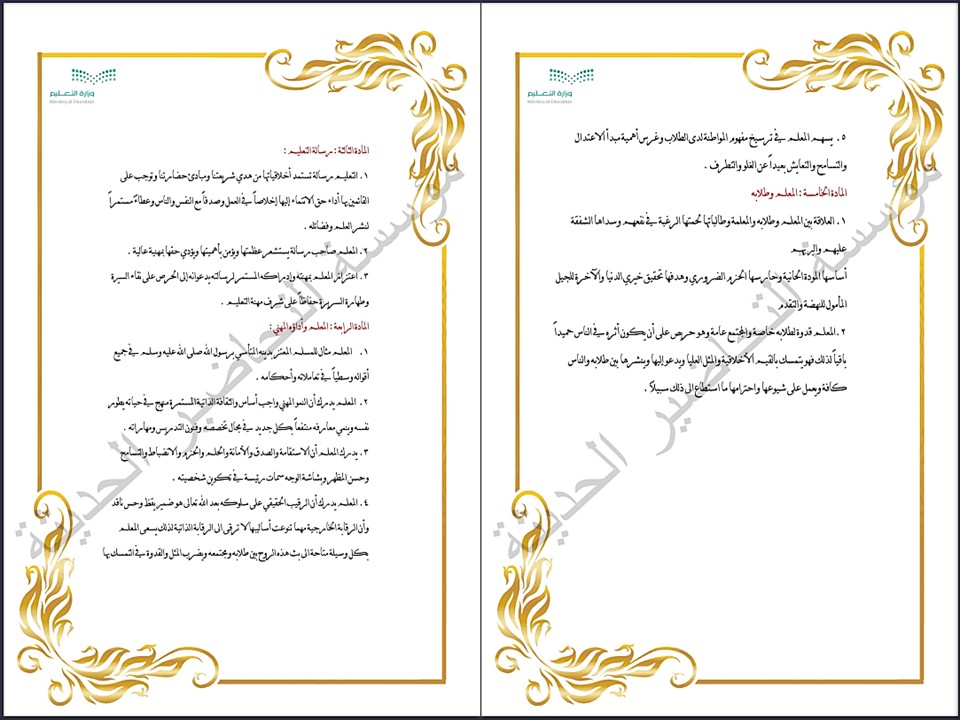 وزارة التعليم
Ministry of Education
المادة الثالثة : رسالة التعليم :
١. التعليم رسالة تستمد أخلاقياتها من هدي شريعتنا ومبادئ حضارتنا وتوجب على
القائمين بها أداء حق الانتماء إليها إخلاصاً في العمل وصدقاً مع النفس والناس وعطاءً مستمراً
لنشر العلم وفضائله .
٢. المعلم صاحب رسالة يستشعر عظمتها ويؤمن بأهميتها ويؤدي حقها بمهنية عالية .
٣. اعتزاز المعلم بمهنته وإدراكه المستمر لرسالته يدعوانه إلى الحرص على نقاء السيرة
وطهارة السريرة حفاظاً على شرف مهنة التعليم .
المادة الرابعة : المعلم وأداؤه المهني :
١. المعلم مثال للمسلم المعتز بدينه المتأسي برسول الله صلى الله عليه وسلم في جميع
أقواله وسطياً في تعاملاته وأحكامه .
٢. المعلم يدرك أن النمو المهني واجب أساس والثقافة الذاتية المستمرة منهج في حياته يطور
نفسه وينمي معارفه منتفعاً بكل جديد في مجال تخصصه وفنون التدريس ومهاراته .
٣. يدرك المعلم أن الاستقامة والصدق والأمانة والحلم والحزم والانضباط والتسامح
وحسن المظهر وبشاشة الوجه سمات رئيسة في تكوين شخصيته .
٤. المعلم يدرك أن الرقيب الحقيقي على سلوكه بعد الله تعالى هو ضمير يقظ وحس ناقد
وأن الرقابة الخارجية مهما تنوعت أساليبها لا ترقى الى الرقابة الذاتية لذلك يسعى المعلم
بكل وسيلة متاحة الى بث هذه الروح بين طلابه ومجتمعه ويضرب المثل والقدوة في التمسك بها
مؤسسة التحاضير الحديثة
وزارة التعليم
Ministry of Education
٥. يسهم المعلم في ترسيخ مفهوم المواطنة لدى الطلاب وغرس أهمية مبدأ الاعتدال
والتسامح والتعايش بعيداً عن الغلو والتطرف .
المادة الخامسة : المعلم وطلابه
١. العلاقة بين المعلم وطلابه والمعلمة وطالباتها لحمتها الرغبة في نفعهم وسداها الشفقة
عليهم والبر بهم
أساسها المودة الحانية وحارسها الحزم الضروري وهدفها تحقيق خيري الدنيا والآخرة للجيل
المأمول للنهضة والتقدم
٢. المعلم قدوة لطلابه خاصة والمجتمع عامة وهو حريص على أن يكون أثره في الناس حميداً
باقياً لذلك فهو يتمسك بالقيم الأخلاقية والمثل العليا ويدعو إليها وينشرها بين طلابه والناس
كافة ويعمل على شيوعها واحترامها ما استطاع الى ذلك سبيلاً .
مؤسسة التحاضير الحديثة